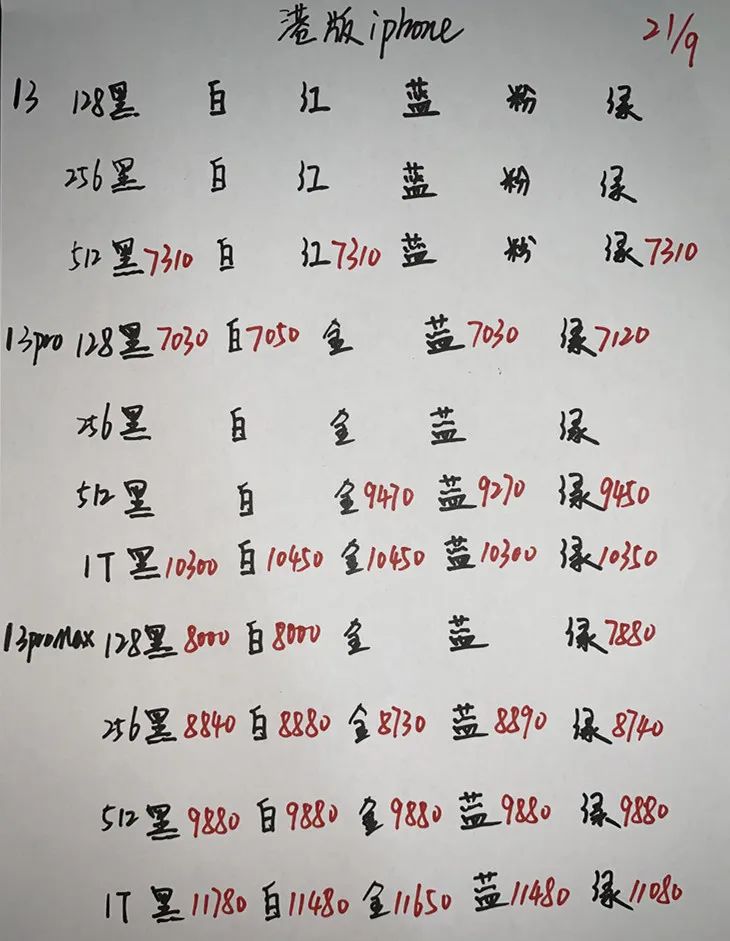 港版iphone 21/9
13 128黑 白 红 蓝 粉 绿
256黑 白 红 蓝 粉 绿
512黑7310 白 红7310 蓝 粉 绿7310
13pro 128黑7030 白7050 金 蓝7030 绿7120
256黑 白 金 蓝 绿
512黑 白 金9470 蓝9270 绿9450
1T黑10300 白10450 金10450 蓝10300 绿10350
13proMax 128黑8000 白8000 金 蓝 绿7880
256黑8840 白8880 金8730 蓝8890 绿8740
512黑9880 白9880 金9880 蓝9880 绿9880
1T黑11780 白11480 金11650 蓝11480 绿11080